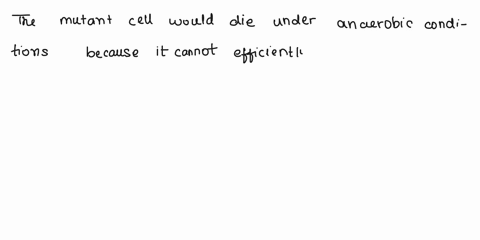 The mutant cell would die under anaerobic condi-
tions because it cannot efficientl